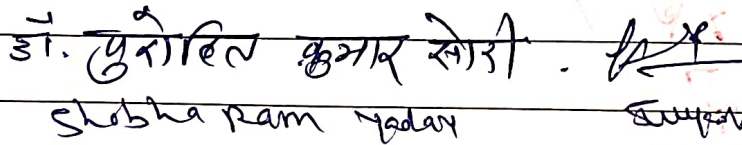 डॉ. पुरोहित कुमार सोरी.
Shobha Ram Yadav